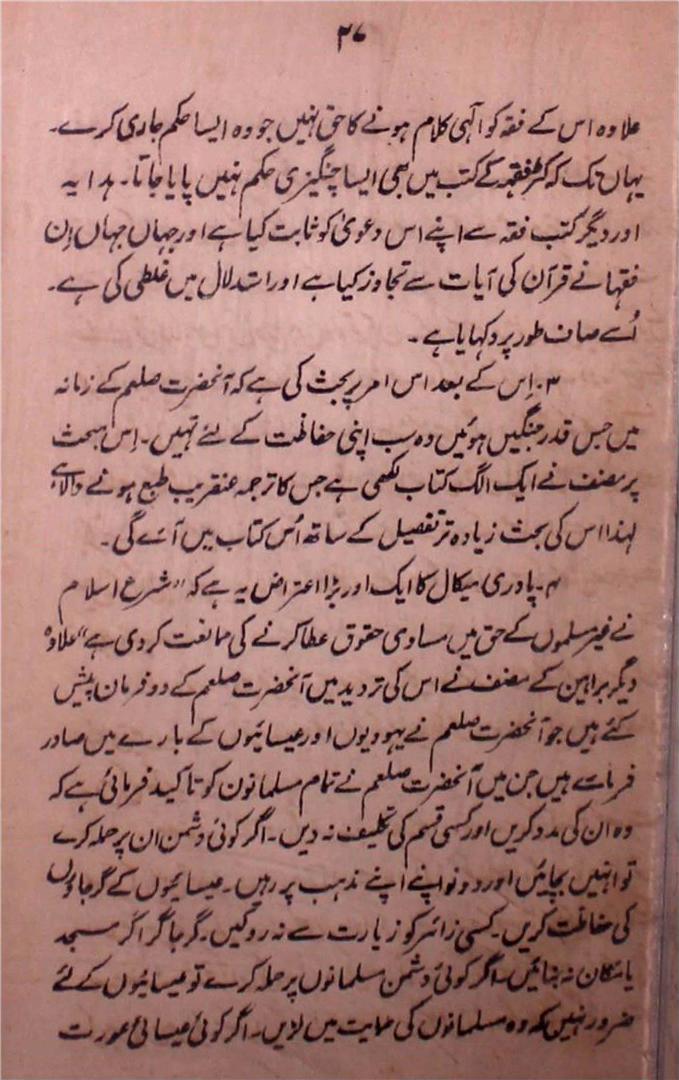 ۲۷
علاوہ اس کے فقہ کو الٰہی کلام ہونے کا حق نہیں جو وہ ایسا حکم جاری کرے۔
یہاں تک کہ کتب فقہ کے کتب میں بھی ایسا چنگیزی حکم نہیں پایا جاتا۔ ہدایہ
اور دیگر کتب فقہ سے اپنے اس دعویٰ کو ثابت کیا ہے اور جہاں جہاں اِن
فقہا نے قرآن کی آیات سے تجاوز کیا ہے اور استدلال میں غلطی کی ہے۔
اُسے صاف طور پر دکہایا ہے۔
۳۔ اِس کے بعد اس امر پر بحث کی ہے کہ آنحضرت صلعم کے زمانہ
میں جس قدر جنگیں ہوئیں وہ سب اپنی حفاظت کے لئے تہیں۔ اِس مبحث
پر مصنف نے ایک الگ کتاب لکھی ہے جس کا ترجمہ عنقریب طبع ہونے والا ہے
لہذا اس کی بحث زیادہ تر تفصیل کے ساتھ اُس کتاب میں آئے گی۔
۴۔ پادری میکال کا ایک اور بڑا اعتراض یہ ہے کہ "شرع اسلام
نے غیر مسلموں کے حق میں مساوی حقوق عطا کرنے کی ممانعت کر دی ہے" علاوہ
دیگر براہین کے مصنف نے اس کی تردید میں آنحضرت صلعم کے دو فرمان پیش
کئے ہیں جو آنحضرت صلعم نے یہودیوں اور عیسائیوں کے بارے میں صادر
فرمائے ہیں جن میں آنحضرت صلعم نے تمام مسلمانوں کو تاکید فرمائی ہے کہ
وہ ان کی مدد کریں اور کسی قسم کی تکلیف نہ دیں۔ اگر کوئی دشمن ان پر حملہ کرے
تو انہیں بچائیں اور دونو اپنے اپنے مذہب پر رہیں۔ عیسائیوں کے گرجاؤں
کی حفاظت کریں۔ کسی زائر کو زیارت سے نہ روکیں۔ گرجا گرا کر مسجد
یا مکان نہ بنائیں۔ اگر کوئی دشمن مسلمانوں پر حملہ کرے تو عیسائیوں کے لئے
ضرور نہیں کہ وہ مسلمانوں کی حمایت میں لڑیں۔ اگر کوئی عیسائی عورت